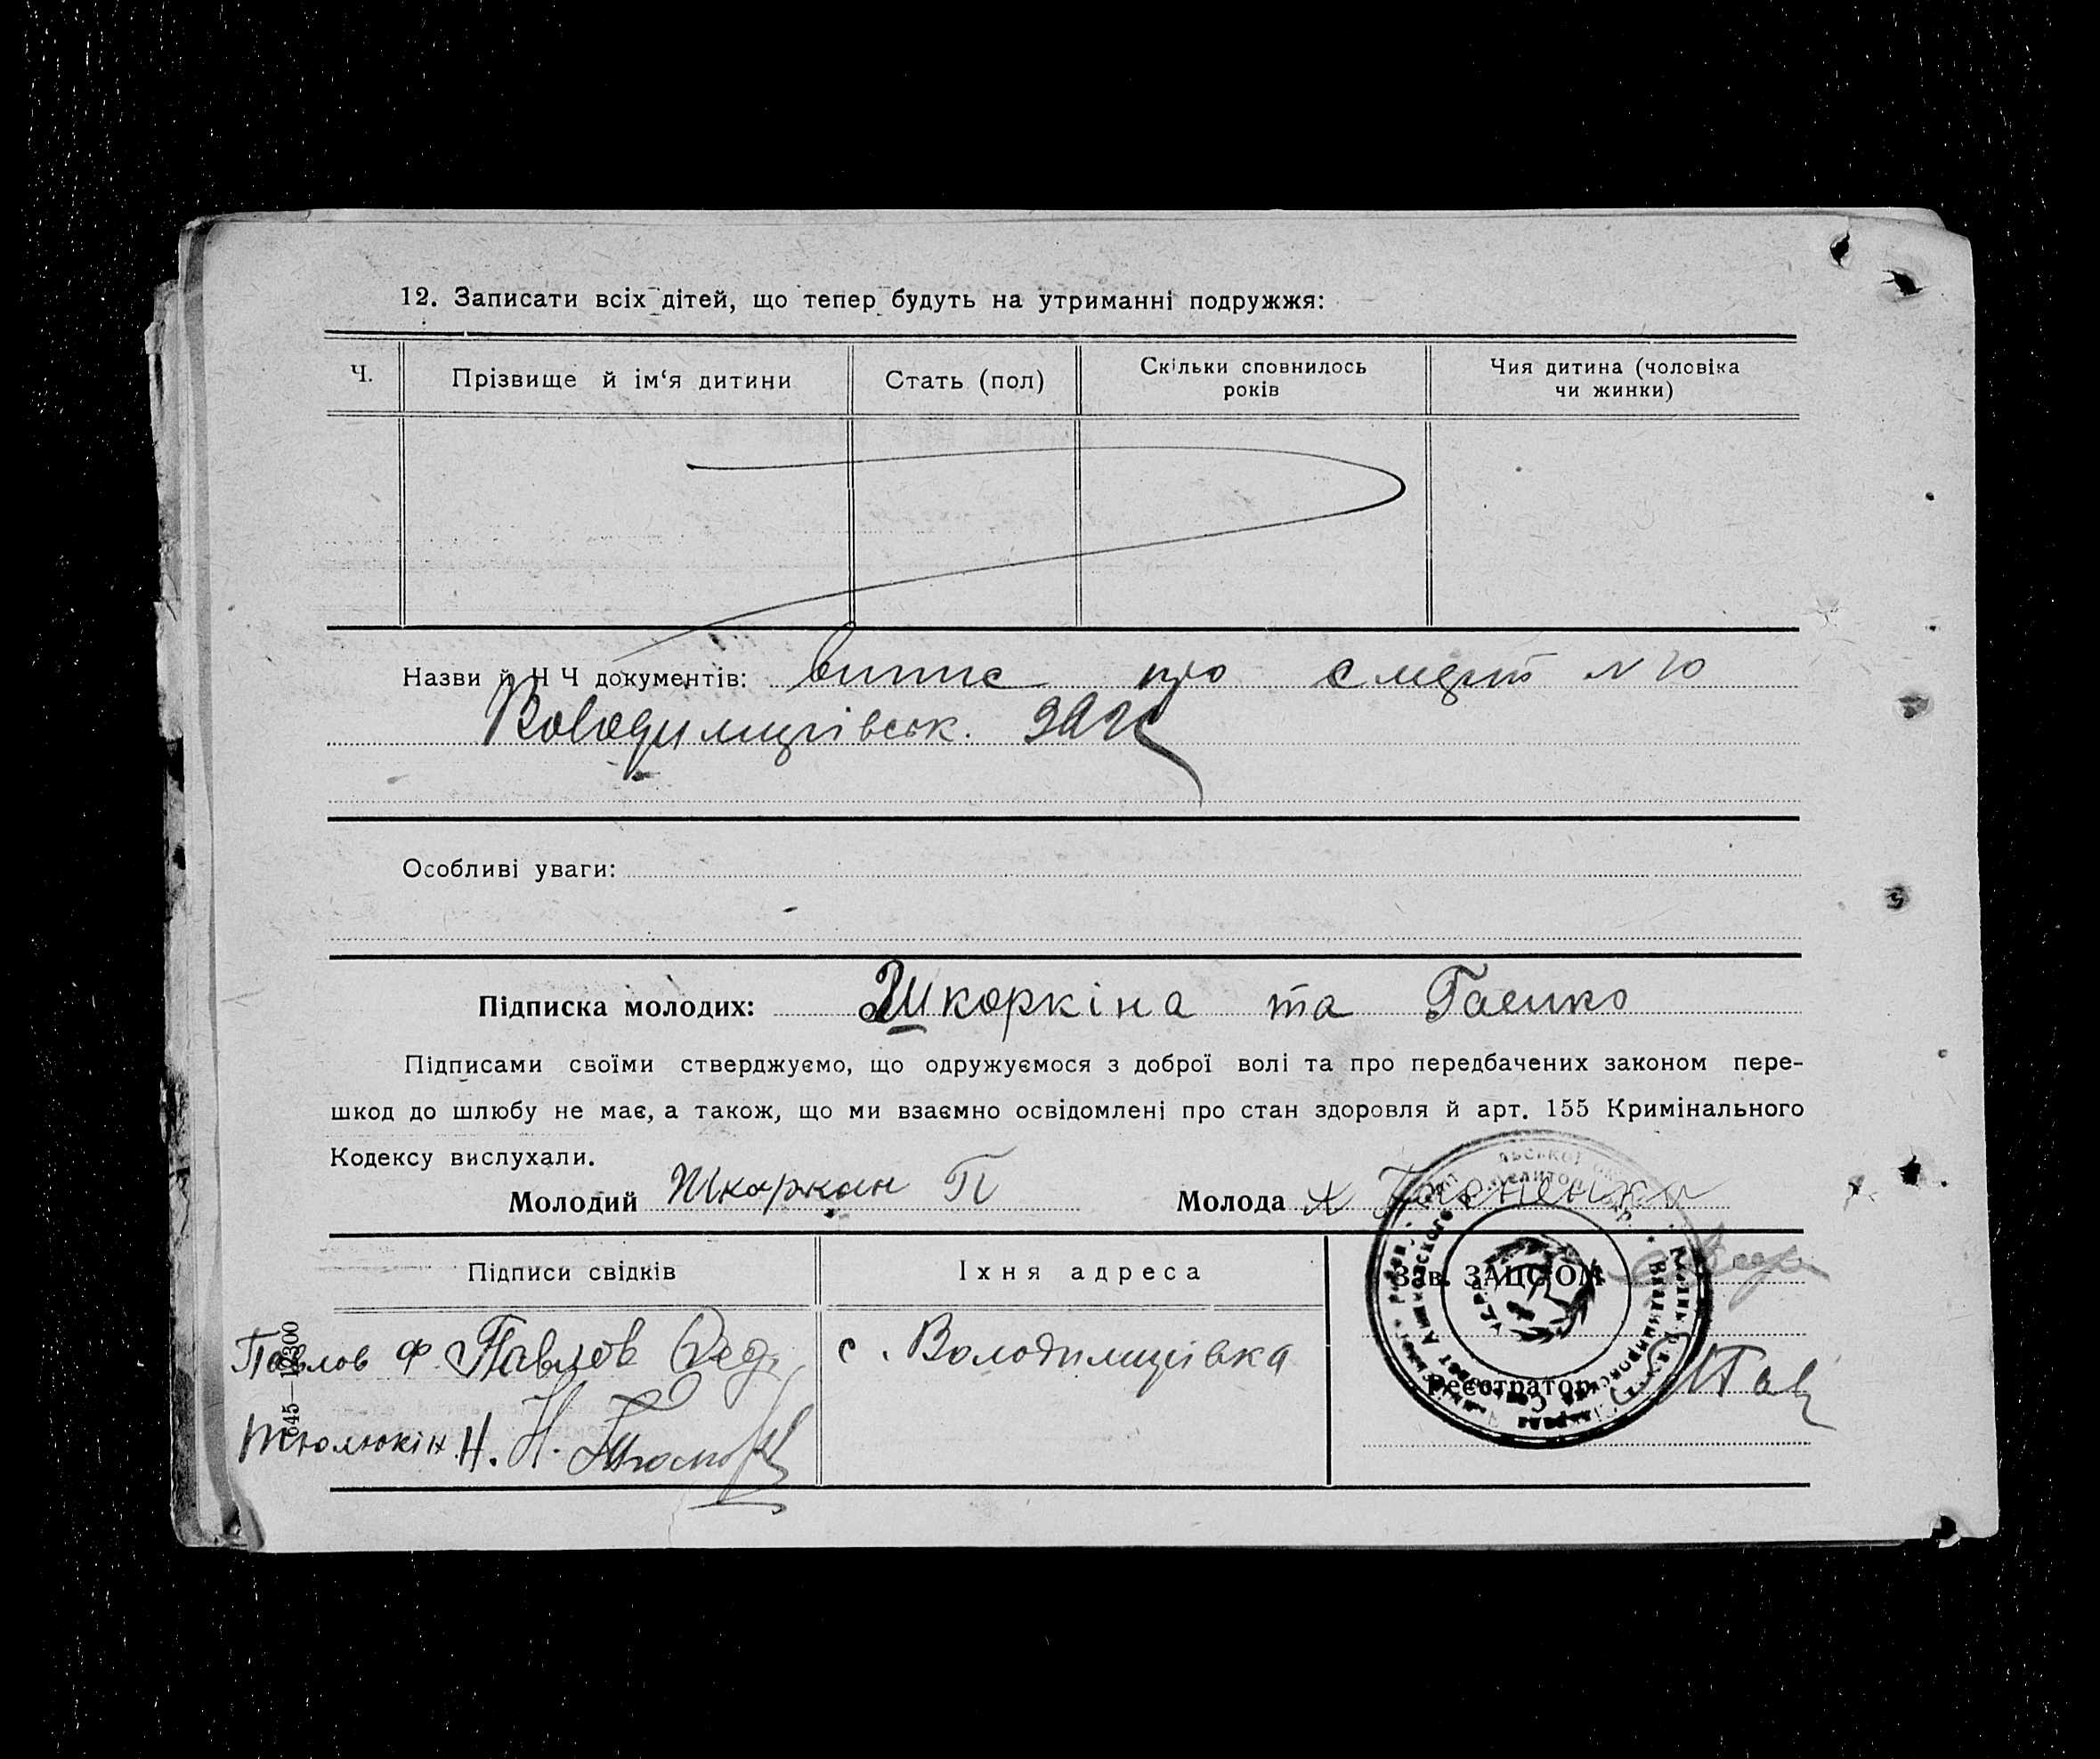 12. Записати всіх дітей, що тепер будуть на утриманні подружжя:
Ч.
Прізвище й ім‘я дитини
Стать (пол)
Скільки сповнилось
років
Чия дитина (чоловіка
чи жинки)
Назви й Н Ч документів: випис про смерть N 10
Володимирівськ. ЗАГС
Особливі уваги:
Підписка молодих: Шкоркіна та Гаенко
Підписами своїми стверджуємо, що одружуємося з доброї волі та про передбачених законом пере-
шкод до шлюбу не має, а також, що ми взаємно освідомлені про стан здоровля й арт. 155 Кримінального
Кодексу вислухали.
Молодий Шкоркин П Молода
Підписи свідків
Їхня адреса
Зав. ЗАЦС‘ОМ
Павлов Ф. Павлов Фед.
с. Володимирівка
Реєстратор
Тюлюкін Н. Н.
645—12300